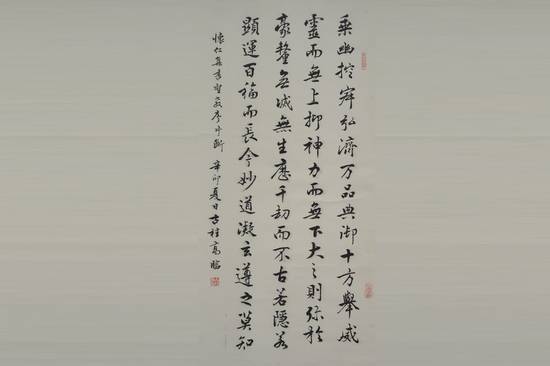 乘幽控寂弘濟万品典御十方舉威
靈而無上抑神力而無下大之則弥於
豪釐无滅無生歷千劫而不古若隱若
顯運百福而長今妙道凝玄遵之莫知
懷仁集書聖教序片斷 辛卯夏日古桂高臨